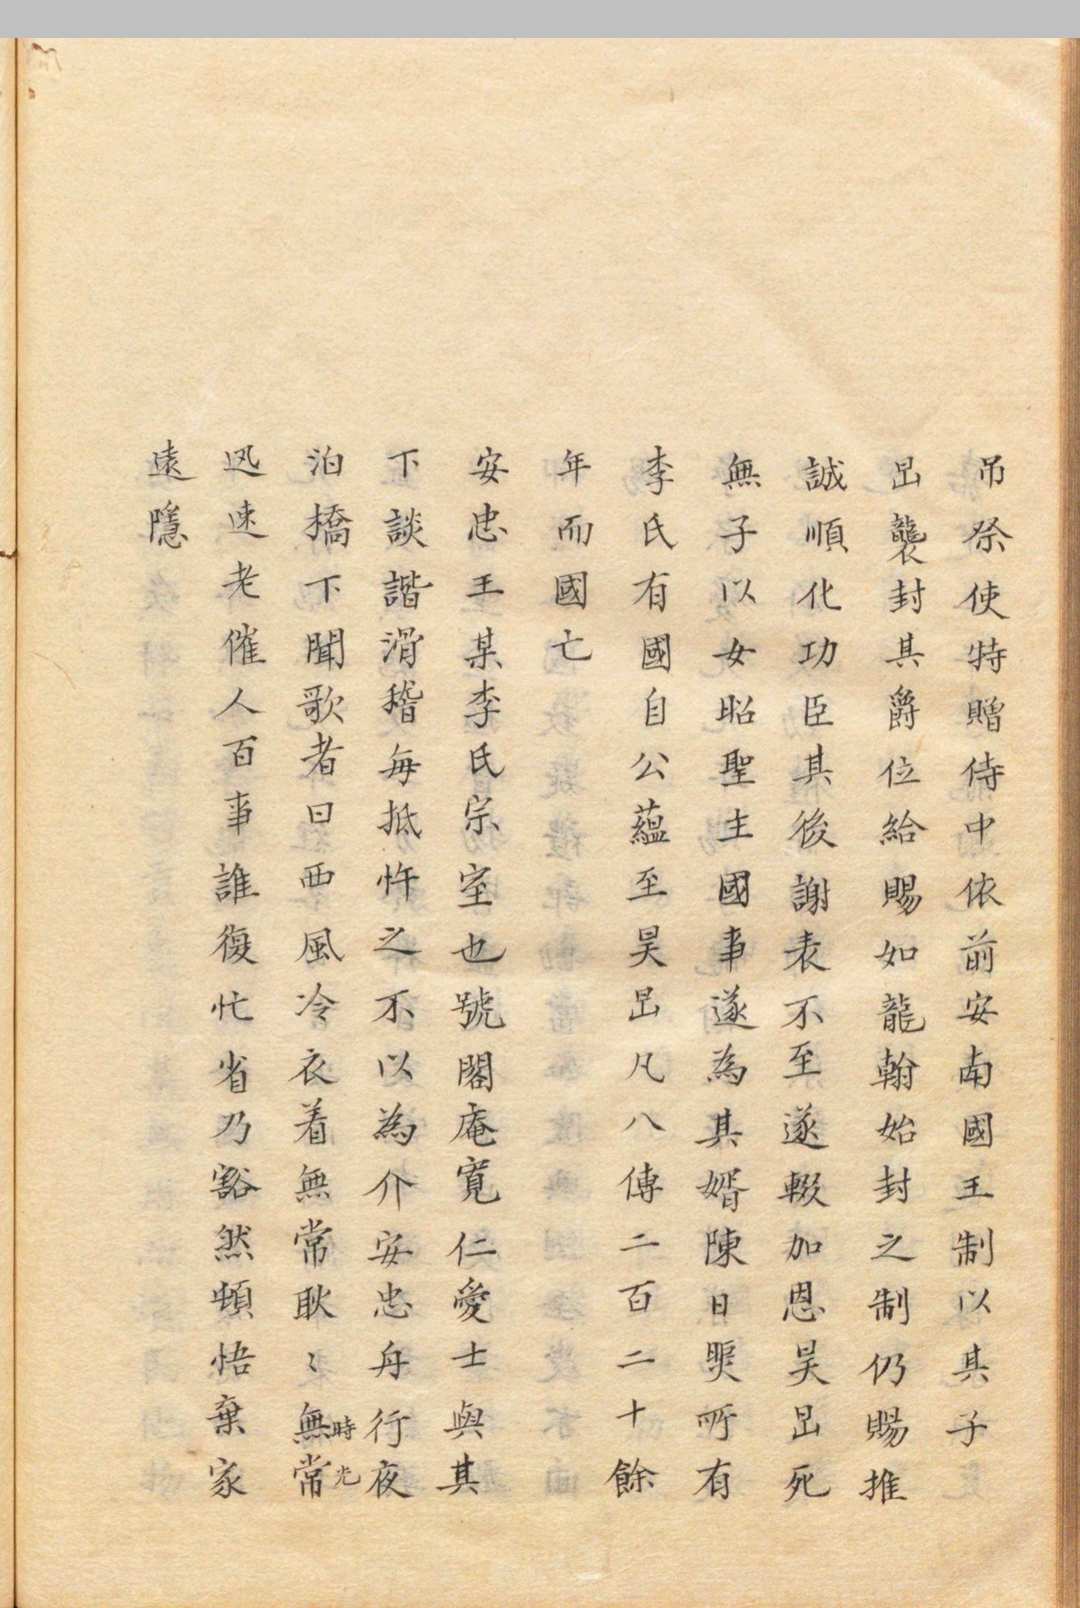 吊祭使特贈侍中依前安南國王制以其子
昺襲封其爵位給賜如龍翰始封之制仍賜推
誠順化功臣其後謝表不至遂輟加恩昊昺死
無子以女昭聖主國事遂為其婿陳日煚所有
李氏有國自公蘊至昊昺凡八傳二百二十餘
年而國亡
安忠王某李氏宗室也號閣庵寬仁愛士與其
下談諧滑稽每抵忤之不以為介安忠舟行夜
泊橋下聞歌者曰西風冷衣着無常耿〻無常
時光
迅速老催人百事誰復忙省乃豁然頓悟棄家
遠隱